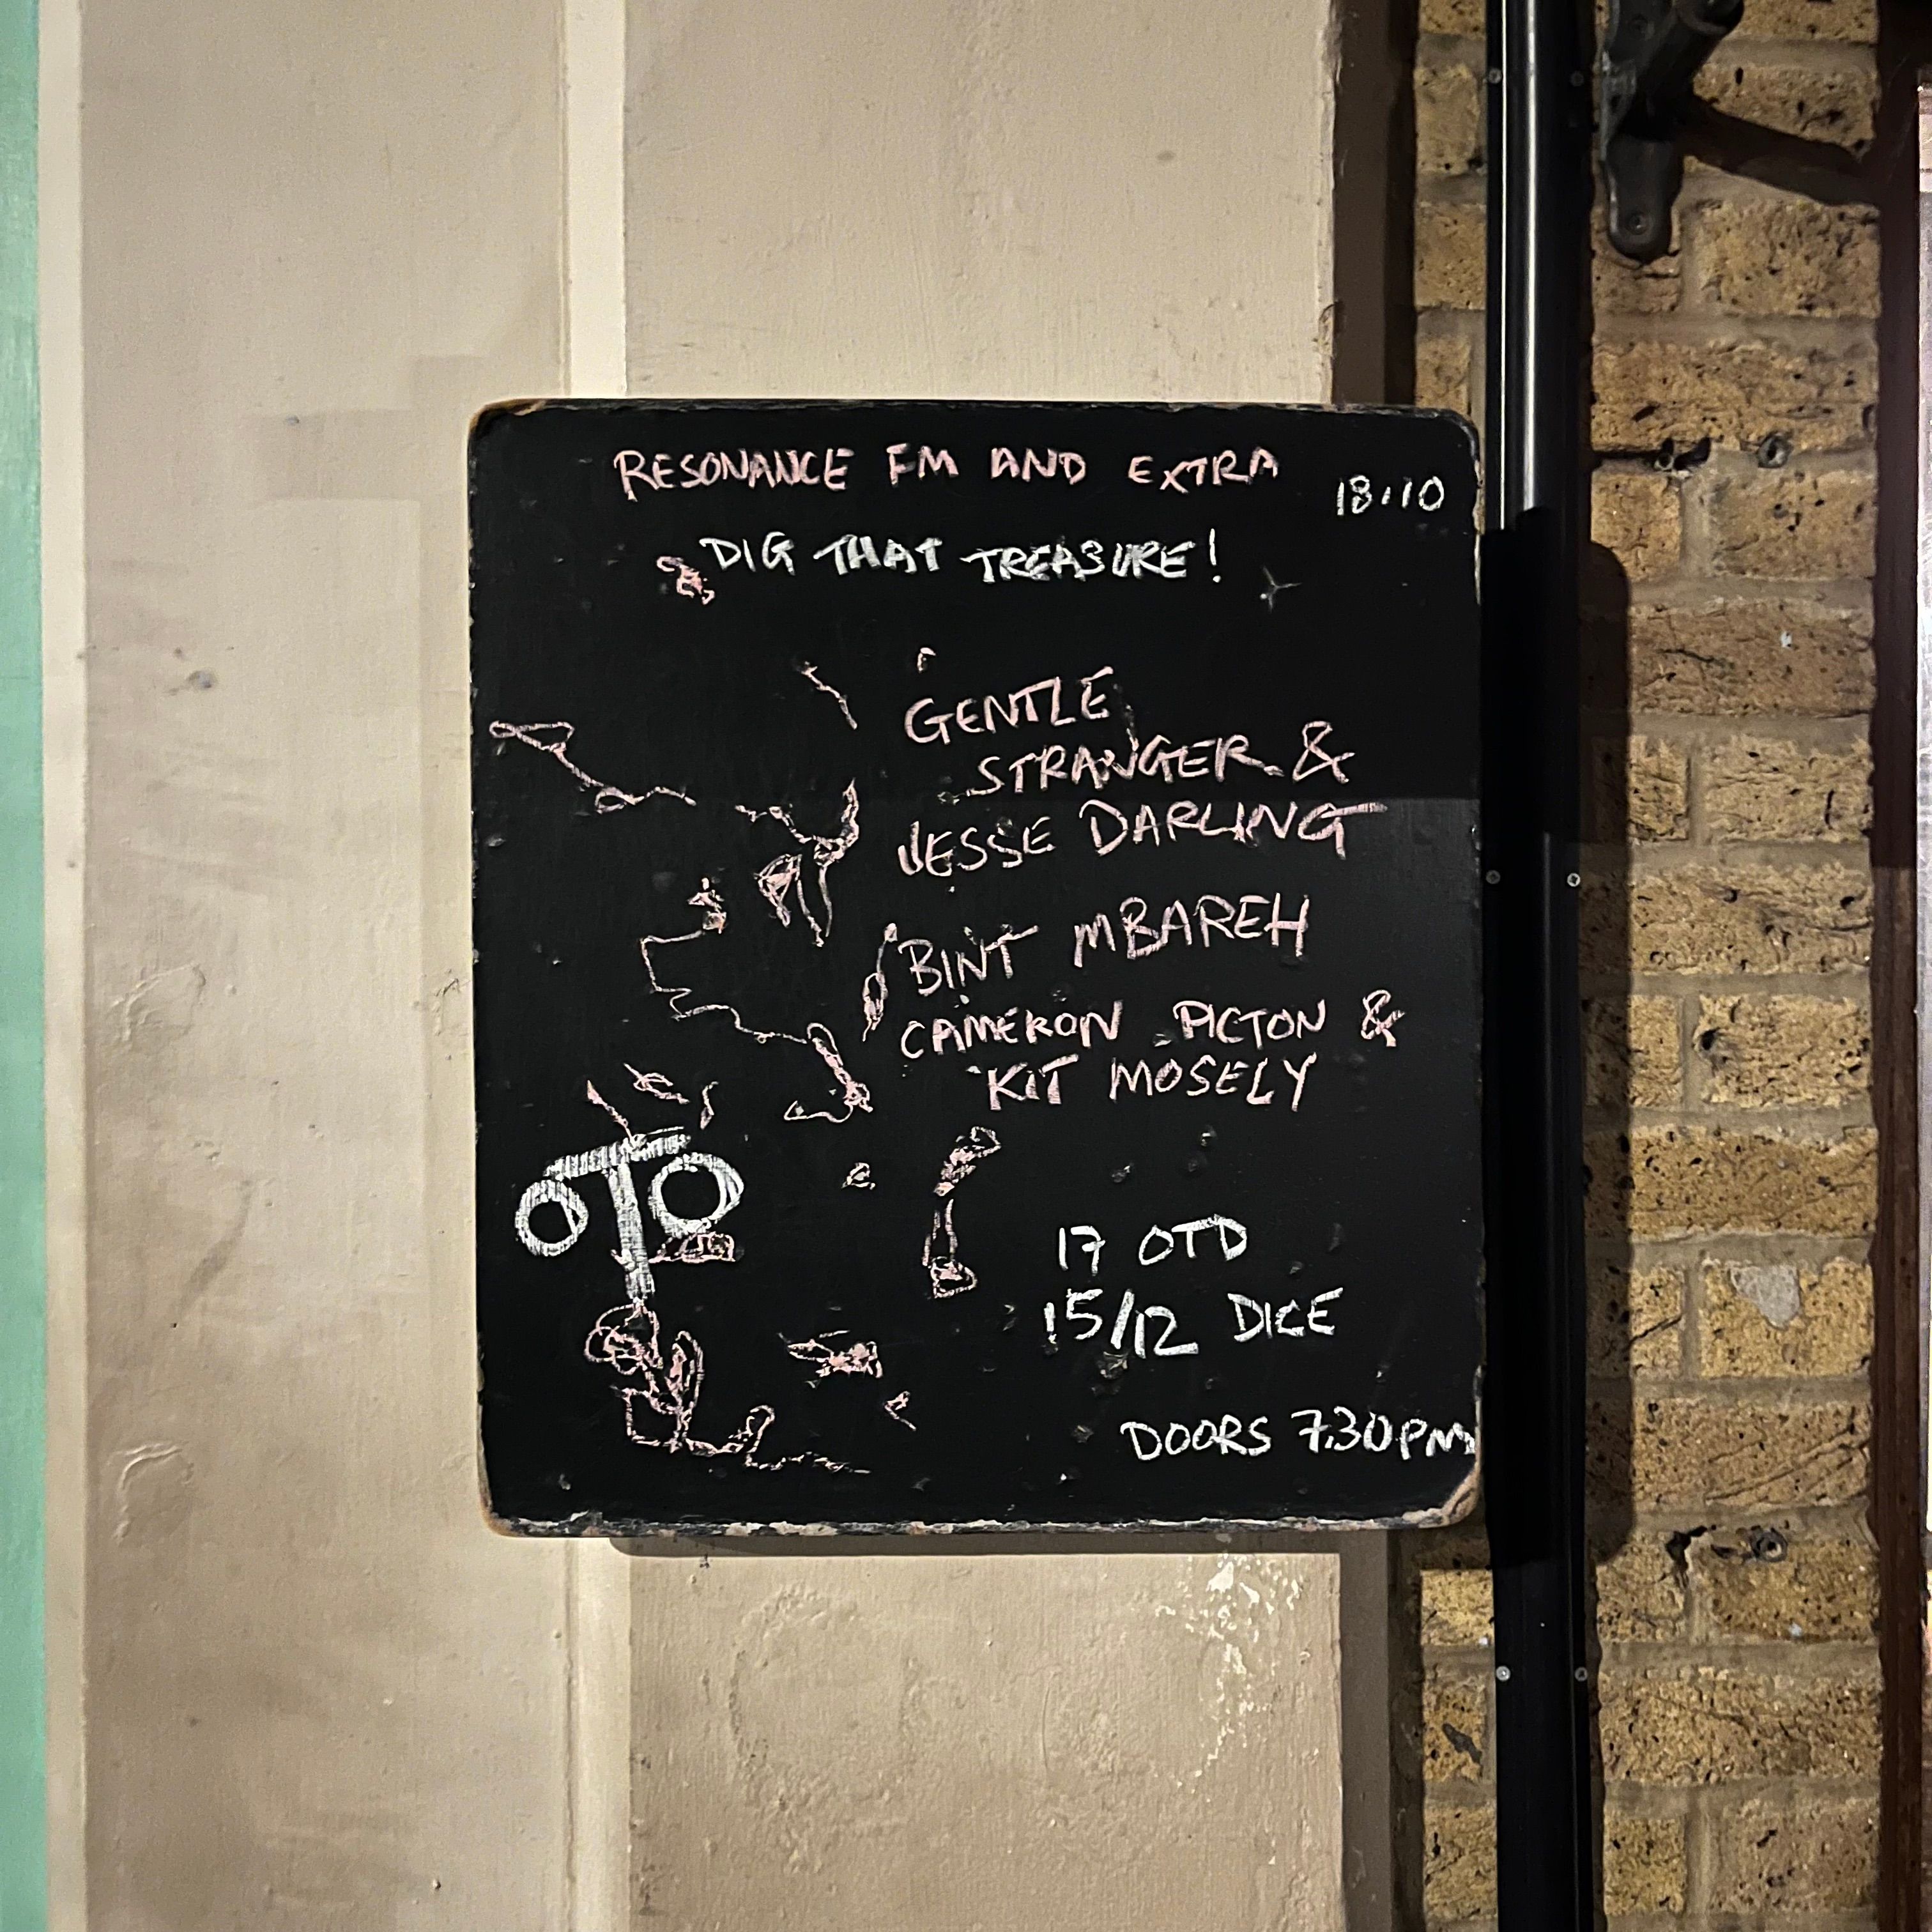 RESONANCE FM AND EXTRA
18.10
DIG THAT TREASURE!
GENTLE
STRANGER &
JESSE DARLING
BINT MBAREH
CAMERON PICTON &
KIT MOSELY
OTO
17 OTD
15/12 DICE
DOORS 7.30PM